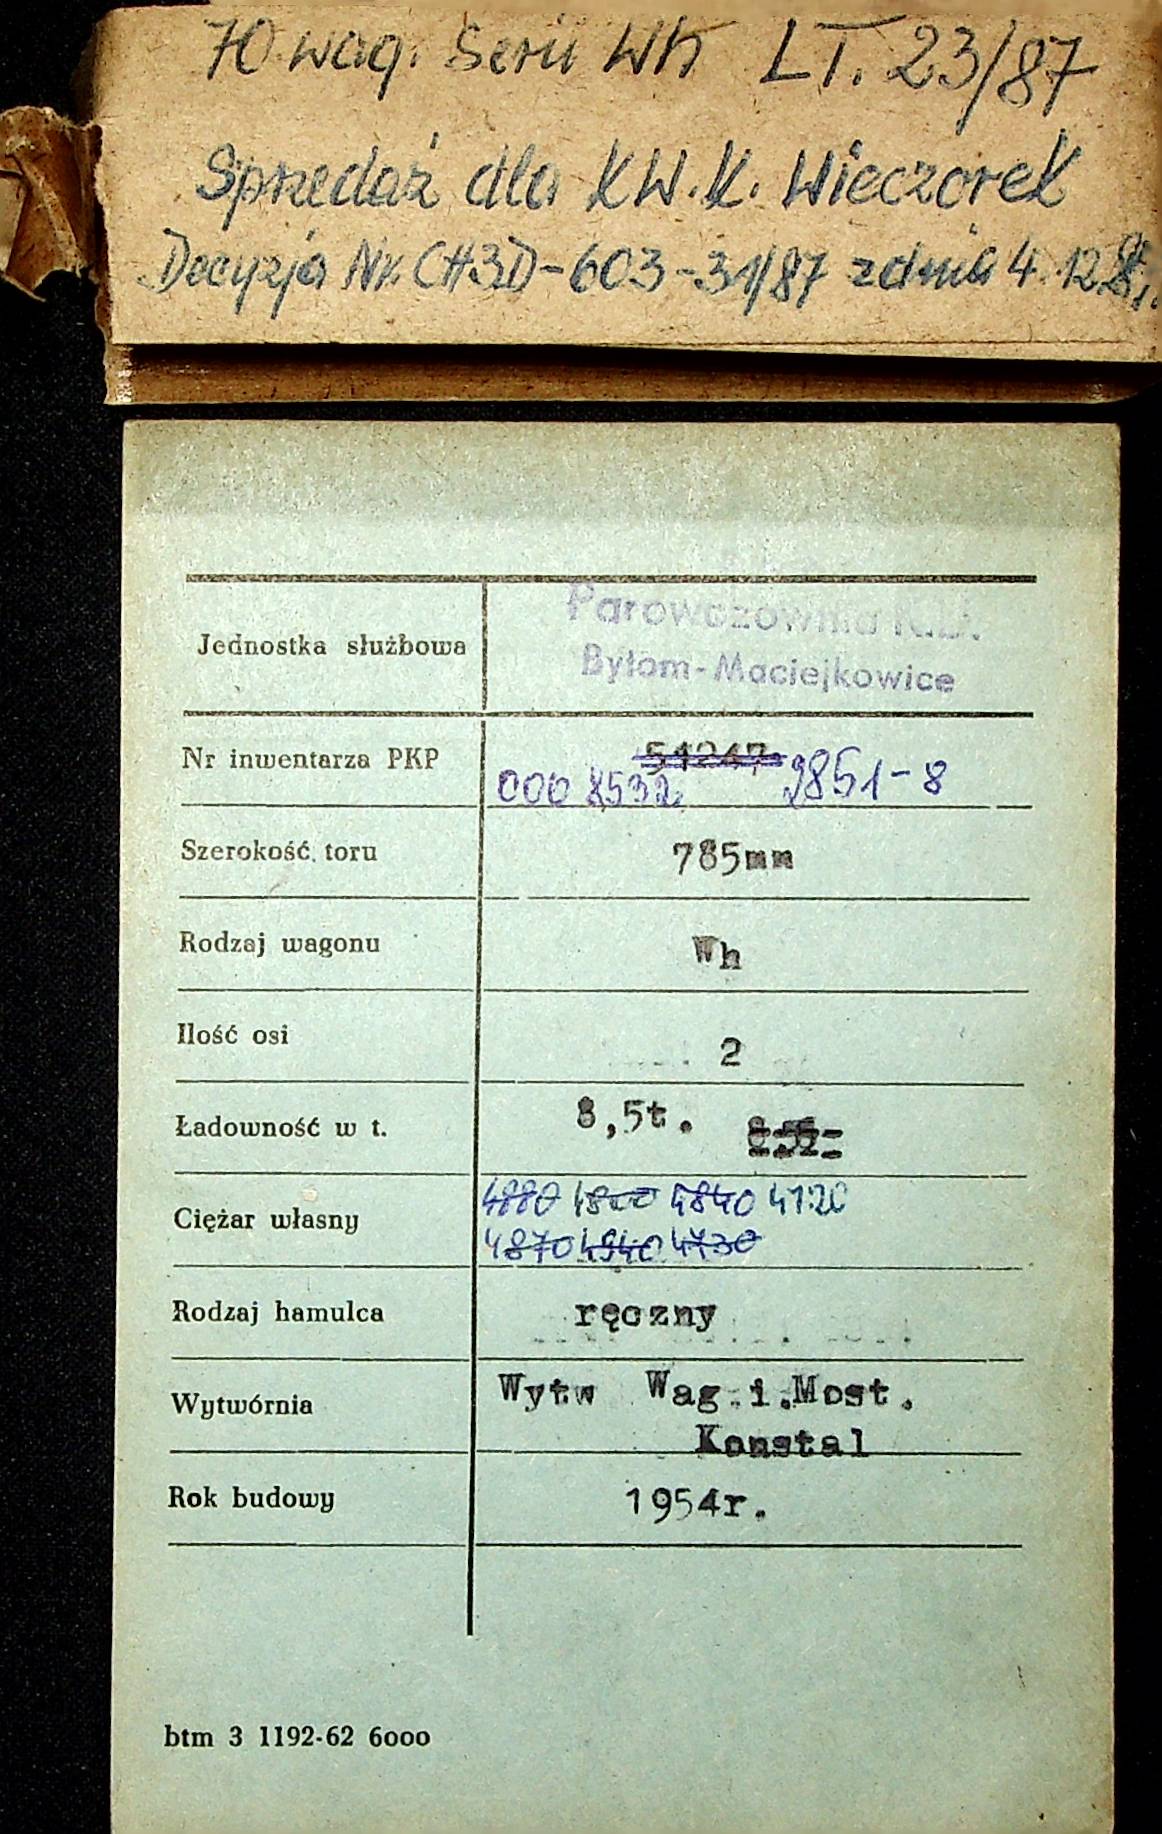 70 wag. Serii Wh LT. 23/87
Sprzedaż dla KW.K. Wieczorek
Decyzja Nr. CH3D-603-31/87 z dnia 4.12.87r.
Jednostka służbowa
Parowozownia
Bytom-Maciejkowice
Nr inwentarza PKP
51247
000 8532 9851-8
Szerokość toru 785mm
Rodzaj wagonu Wh
Ilość osi 2
Ładowność w t. 8,5t.
Ciężar własny
4880 4840 4720
4870 4940 4730
Rodzaj hamulca ręczny
Wytwórnia Wytw Wag.i.Most.
Konstal
Rok budowy 1954r.
btm 3 1192-62 6000